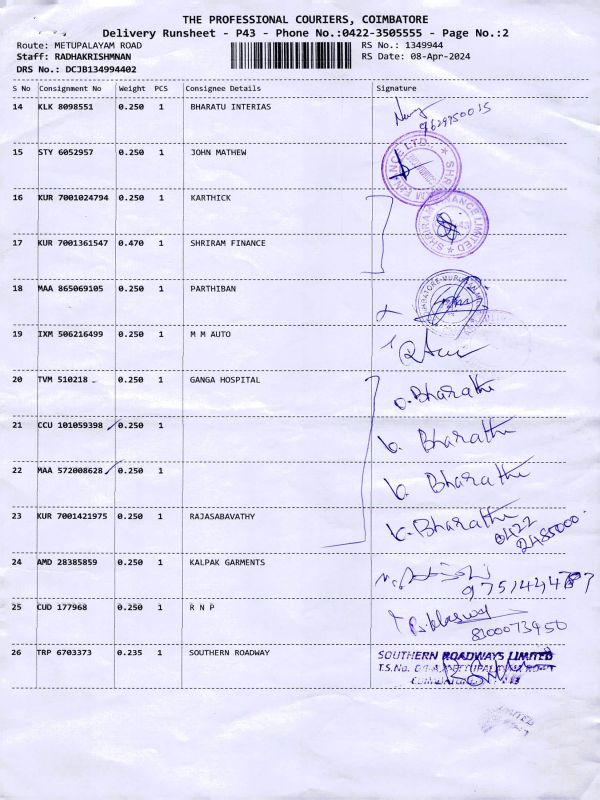 THE PROFESSIONAL COURIERS, COIMBATORE
Delivery Runsheet - P43 - Phone No.:0422-3505555 - Page No.:2
Route: METUPALAYAM ROAD RS No.: 1349944
Staff: RADHAKRISHMNAN RS Date: 08-Apr-2024
DRS No.: DCJB134994402
S No Consignment No Weight PCS Consignee Details Signature
14 KLK 8098551 0.250 1 BHARATU INTERIAS
9629950015
15 STY 6052957 0.250 1 JOHN MATHEW
16 KUR 7001024794 0.250 1 KARTHICK
17 KUR 7001361547 0.470 1 SHRIRAM FINANCE
18 MAA 865069105 0.250 1 PARTHIBAN
19 IXM 506216499 0.250 1 M M AUTO
20 TVM 510218 0.250 1 GANGA HOSPITAL
Bharathi
21 CCU 101059398 0.250 1
Bharathi
22 MAA 572008628 0.250 1
Bharathi
23 KUR 7001421975 0.250 1 RAJASABAVATHY
Bharathi
0422
2485000
24 AMD 28385859 0.250 1 KALPAK GARMENTS
25 CUD 177968 0.250 1 R N P
8100073950
26 TRP 6703373 0.235 1 SOUTHERN ROADWAY
SOUTHERN ROADWAYS LIMITED
T.S.No.